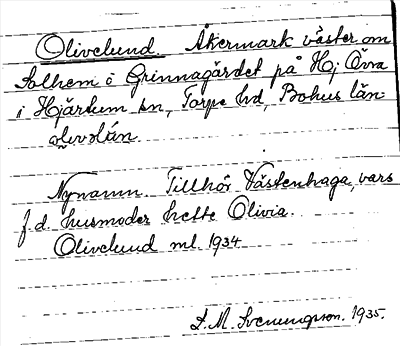 Olivelund. Åkermark väster om
Solhem i Grinnagärdet på Hj. Övra
i Hjärtum sn, Torpe hd, Bohus län.
olivəlún.
Nynamn. Tillhör Västenhaga, vars
f.d. husmoder hette Olivia.
Olivelund ml. 1934
S. M. Svenungson. 1935.